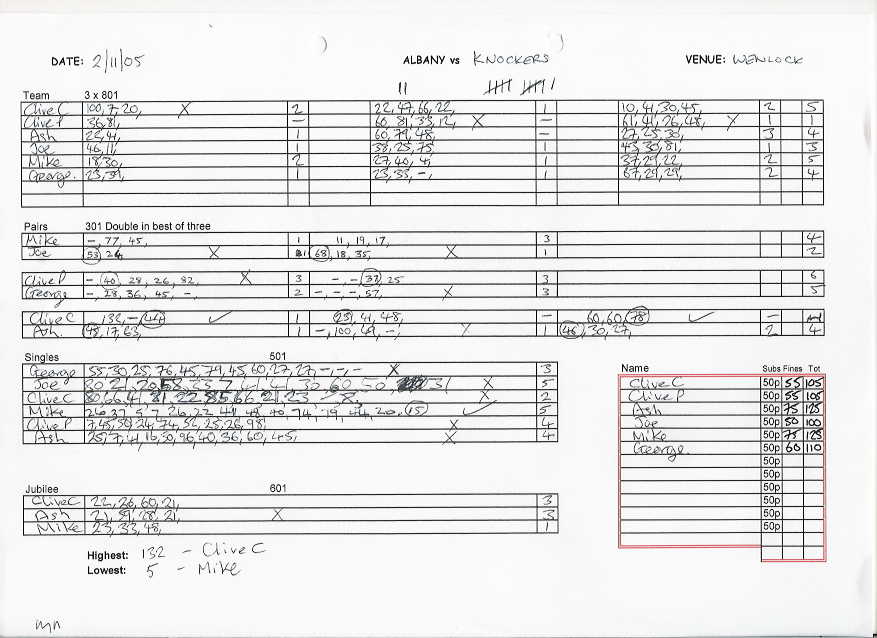 DATE: 2/11/05 ALBANY vs KNOCKERS VENUE: WENLOCK
Team 3 x 801
Clive C 100, 7, 20, X 2 22, 47, 66, 22, 1 10, 41, 30, 45, 2 5
Clive P 36, 81, — 60, 81, 33, 12, X — 61, 41, 26, 48, X 1 1
Ash 23, 41, 1 60, 79, 48, — 27, 25, 30, 3 4
Joe 46, 11, 1 38, 25, 75 1 43, 30, 81, 1 3
Mike 18, 30, 2 27, 40, 4, 1 37, 29, 22, 2 5
George. 23, 39, 1 23, 33, -, 1 67, 29, 29, 2 4
Pairs 301 Double in best of three
Mike -, 77, 45, 1 11, 19, 17, 3 4
Joe 53 24 X 1 68, 18, 35, X 1 2
Clive P -, 40, 28, 26, 82, X 3 -, -, 37, 25 3 6
George -, 28, 36, 45, -, 2 -, -, -, 57, X 3 5
Clive C 132, - 44 ✓ 1 25, 41, 48, — 60, 60, 78 ✓ —
Ash. 48, 17, 63, 1 -, 100, 49, -, X 1 46, 30, 27, 2 4
Singles 501
George 55, 30, 25, 76, 45, 79, 45, 60, 27, 27, -, -, - X 3
Joe X 5
Clive C X 2
Mike ✓ 5
Clive P 7, 45, 50, 24, 74, 52, 25, 26, 98, X 4
Ash 25, 7, 41, 16, 30, 96, 40, 36, 60, 45, X 4
Jubilee 601
Clive C 22, 26, 60, 21, 3
Ash 21, 39, 28, 21, X 3
Mike 23, 33, 48, 1
Highest: 132 - Clive C
Lowest: 5 - Mike
Name Subs Fines Tot
Clive C 50p 55 105
Clive P 50p 55 105
Ash 50p 75 125
Joe 50p 50 100
Mike 50p 75 125
George. 50p 60 110
50p
50p
50p
50p
50p
50p